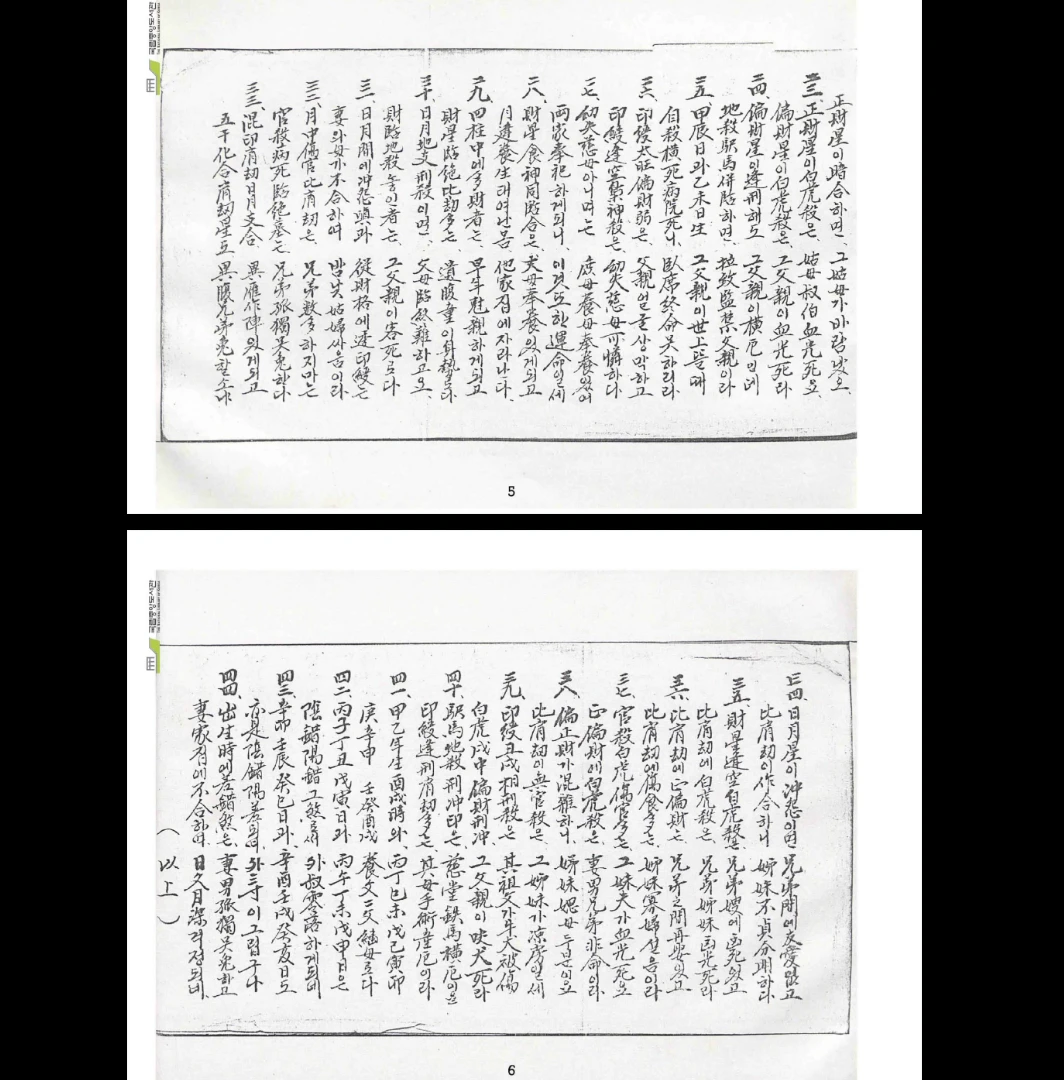 正財星이 暗合하면、 그 姑母가 바람났오、
三三、正財星이 白虎殺은、 姑母叔伯 血光死오、
偏財星이 白虎殺은、 그 父親이 血光死라
二四、偏財星이 逢刑해도 그 父親이 橫厄인데
地殺馹馬 併臨하면、 拉致監禁 父親이라
二五、甲辰日과 乙未日生 그 父親이 世上뜰때
自殺橫死 病院死니 臥席終命 못하리라
二六、印綬太旺 偏財弱은、 父親얼굴 상막하고
印綬逢空 梟神殺은、 幼失慈母 可憐하다
二七、幼失慈母 아니면는 庶母養母 奉養있어
両家奉祀 하게되니、 이것또한 運命일세
二八、財星食神 同臨合은、 丈母奉養 있게되고
月逢養生 태여난몸 他家집에 자라난다、
二九、四柱中에 多財者는、 早年尅親 하게되고
財星臨絶 比劫多는 遺腹童이 身勢로다
三十、日月地支 刑殺이면、 父母臨終 難하고오、
財臨地殺 놓인者는、 그 父親이 客死로다
三一、日月間에 冲怨嗔과 從財格에 逢印綬는
妻와母가 不合하여 밤낮姑婦 싸움이라
三二、月中傷官 比肩劫은、 兄弟數多 하지마는
官殺病死 臨絶墓는 兄弟孤獨 못免한다
三三、混印肩劫 日月支合、 異應作陣 있게되고
五干化合 肩劫星도 異腹兄弟 免할소냐
5
三四、日月星이 冲怨이면 兄弟間에 友愛없고
比肩劫이 作合하니 姉妹不貞 分明하다
三五、財星逢空 白虎殺은 兄弟嫂에 凶死있고
比肩劫에 白虎殺은、 兄弟姉妹 凶光死라
三六、比肩劫에 正偏財는 兄弟之間 再娶있고
比肩劫에 傷食多는 姉妹寡婦 설음이라
三七、官殺白虎 傷官多는 그 妹夫가 血光死오
正偏財에 白虎殺은、 妻男兄弟 非命이라、
三八、偏正財가 混雜하니 姉妹媤母 두분이오
比肩劫이 無官殺은、 그 姉妹가 凉房일세
三九、印綬丑戌 相刑殺은 其祖父가 牛犬被傷
白虎戌中 偏財刑冲、 그 父親이 吠犬死라
四十、馹馬地殺 刑冲印은 慈堂鉄馬 橫厄이요
印綬逢刑 肩劫多는 其母手術 産厄이라、
四一、甲乙年生 酉戌時와、 丙丁巳未 戊己寅卯
庚辛申 壬癸酉戌 養父二父 繼母로다
四二、丙子丁丑 戊寅日과 丙午丁未 戊申日은
陰錯陽錯 그煞로써 外叔零落 하게되네
四三、辛卯壬辰 癸巳日과、 辛酉壬戌 癸亥日도
亦是陰錯 陽差되며 外三寸이 그립구나
四四、出生時에 差錯煞은、 妻男孤獨 못免하고
妻家집에 不合하며 日久月深 걱정되네、
（以上）
6